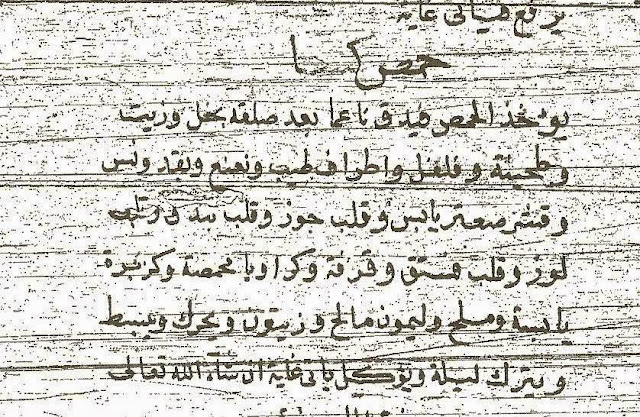 يرفع فياتى غاية
حمص كسا
يوخذ الحمص فيدق ناعما بعد صلقه بخل وزيت
وطحينة وفلفل واطراف طيب ونعنع وبقدونس
وقشر صعتر يابس وقلب جوز وقلب بندق وقلب
لوز وقلب فستق وقرفة وكراويا محمصة وكزبرة
يابسة وملح وليمون مالح وزيتون ويحرك ويبسط
ويترك ليلة ويؤكل ياتى غاية ان شاء الله تعالى